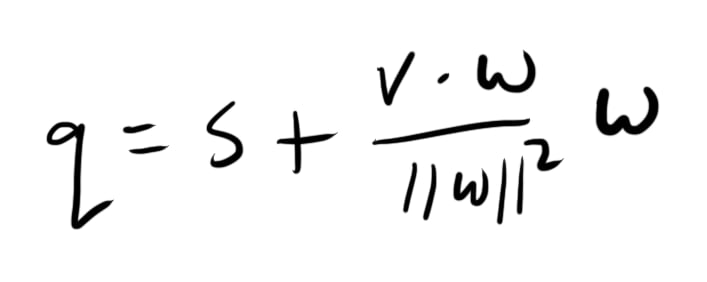 q = s + \frac{v \cdot w}{||w||^2} w